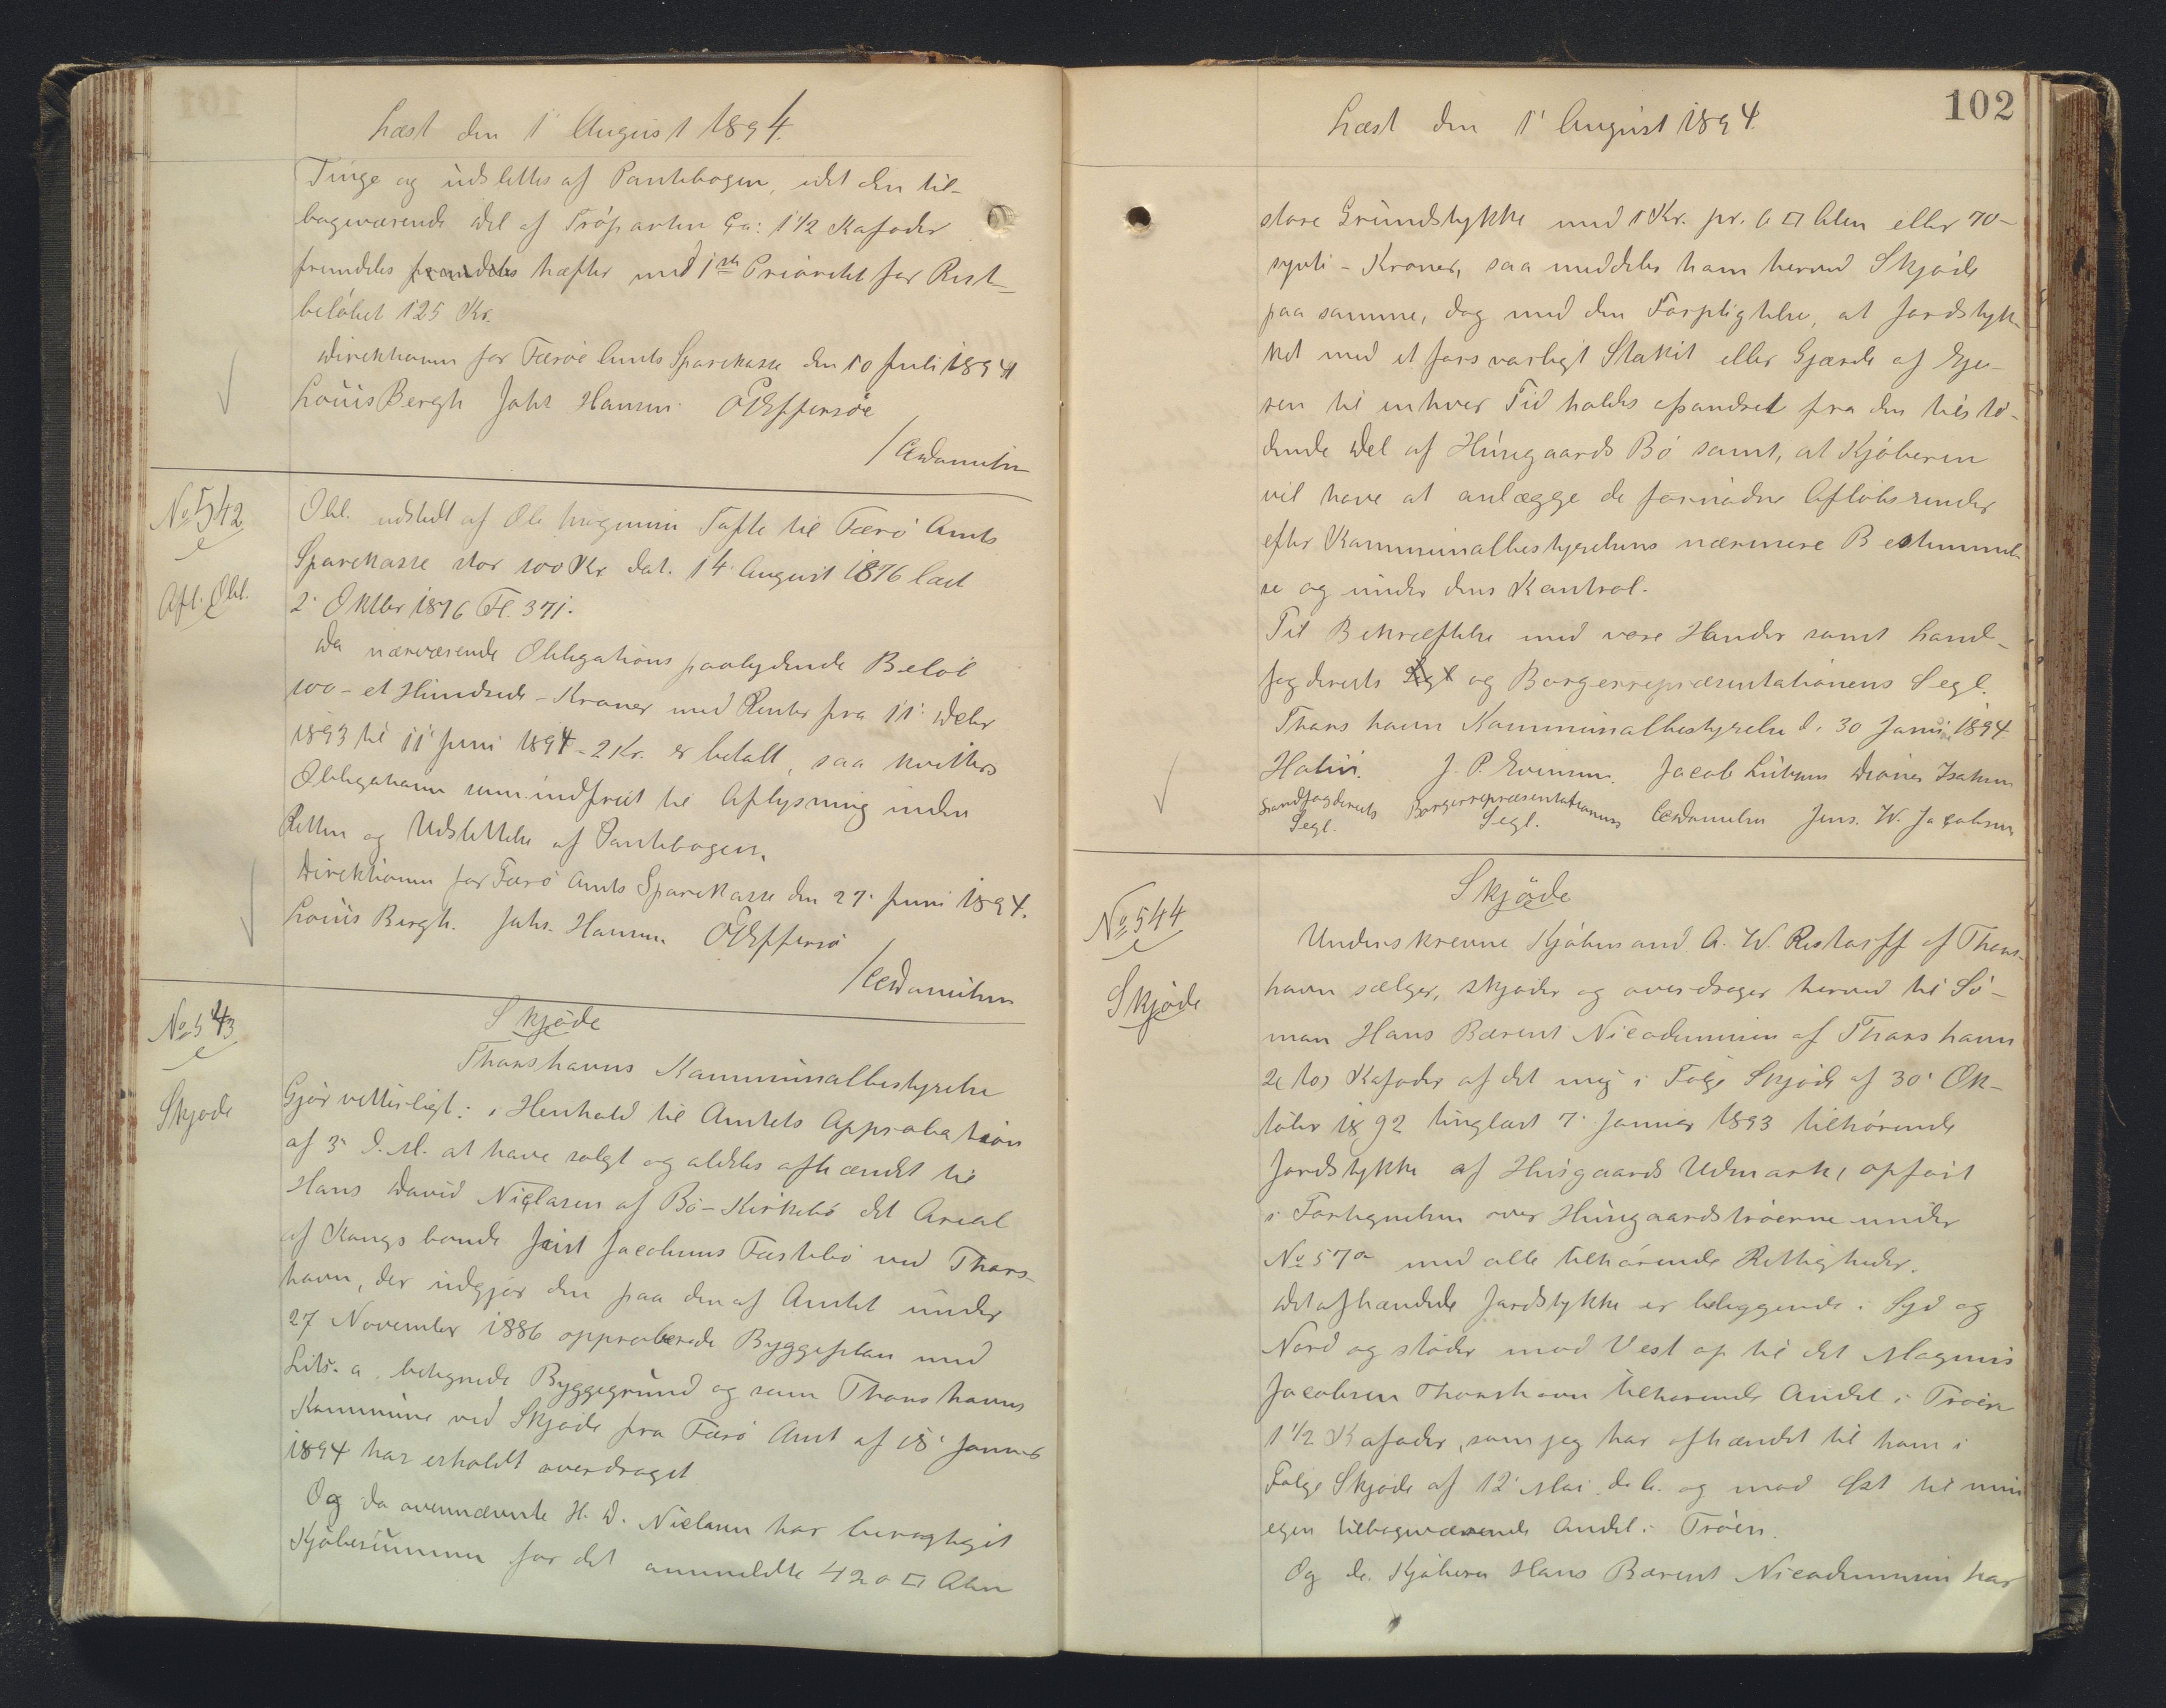 Læst den 1' August 1894.
Tinge og udslettes af Pantebogen, idet den til-
bageværende Del af Tröparten Ca: 1 1/2 Kafoder
fremdeles fremdeles hæfter med 1ste Prioritet for Rest-
beløbet 125 Kr.
Direktionen for Færöe Amts Sparekasse den 10 Juli 1894
Louis Bergh Johs Hansen O Effersöe
/CDanielsen
No 542
Afl. Obl.
Obl. udstedt af Ole Magnus Tofte til Færö Amts
Sparekasse stor 100 Kr. dat. 14 August 1876 læst
2' Oktbr 1876 Fl. 371.
Da nærværende Obligations paalydende Beløb
100 - et Hundrede - Kroner med Renter fra 11' Decbr
1893 til 11' Juni 1894 - 2 Kr. er betalt, saa kvitteres
Obligationen som indfriet til Aflysning inden
Retten og Udslettelse af Pantebogen.
Direktionen for Færö Amts Sparekasse den 27' Juni 1894.
Louis Bergh. Johs. Hansen. O Effersö
/CDanielsen
No 543
Skjøde
Skjöde
Thorshavns Kommunalbestyrelse
Gjör vitterligt: i Henhold til Amtets Approbation
af 3' d. M. at have solgt og aldeles afhændet til
Hans David Niclasen af Bö - Kirkebö det Areal
af Kongsbonde Joist Jacobsens Fæstebö ved Thors-
havn, der udgjör den paa den af Amtet under
27 November 1886 approberede Byggeplan med
Litr. a. betegnede Byggegrund og som Thorshavns
Kommune ved Skjøde fra Færö Amt af 18' Januar
1894 har erholdt overdraget
Og da ovennævnte H. D. Nielasen har berigtiget
Kjöbesummen for det anmeldte 420 □ Alen
102
Læst den 1' August 1894.
store Grundstykke med 1 Kr. pr. 6 □ Alen eller 70 -
syvti - Kroner, saa meddeles ham herved Skjöde
paa samme, dog med den Forpligtelse, at Jordstyk-
ket med et forsvarligt Stakit eller Gjærde af Eje-
ren til enhver Tid holdes afsondret fra den tilstö-
dende Del af Húsgaards Bö samt, at Kjöberen
vil have at anlægge de fornødne Afløbsrender
efter Kommunalbestyrelsens nærmere Bestemmel-
se og under dens Kontrol.
Til Bekræftelse med vore Hænder samt Land-
fogderiets Segl og Borgerrepræsentationens Segl.
Thorshavn Kommunalbestyrelse d. 30 Juni 1894
J. P. Evensen. Jacob Lützen Dionis Isaksen
Landfogderiets Borgerrepræsentationens CDanielsen Jens. W. Jacobsen
Segl. Segl.
No 544
Skjøde
Skjøde
Underskrevne Kjöbmand A. W. Restorff af Thors-
havn sælger, skjøder og overdrager herved til Sö-
mand Hans Bærent Nicodemussen af Thorshavn
2 (to) Kafoder af det mig i Følge Skjøde af 30' Ok-
tober 1892 tinglæst 7' Januar 1893 tilhørende
Jordstykke af Husgaards Udmark, opført
i Fortegnelsen over Húsgaardströerne under
No 57a med alle tilhørende Rettigheder.
Det afhændede Jordstykke er beliggende i Syd og
Nord og støder mod Vest op til det Magnus
Jacobsen Thorshavn tilhørende Andel i Tröen
1 1/2 Kafoder, som jeg har afhændet til ham i
Følge Skjøde af 12' Mai d. A. og mod Øst til min
egen tilbageværende Andel i Tröen.
Og da Kjöberen Hans Bærent Nicodemussen har